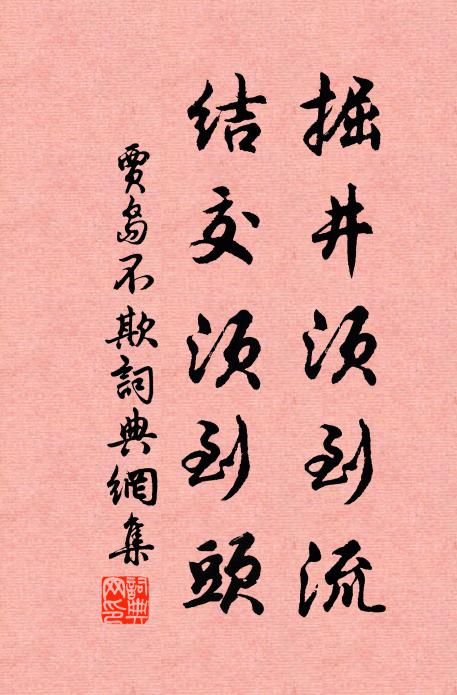 掘井須到流
結交須到頭
賈島不欺詞典網集
詞典網印